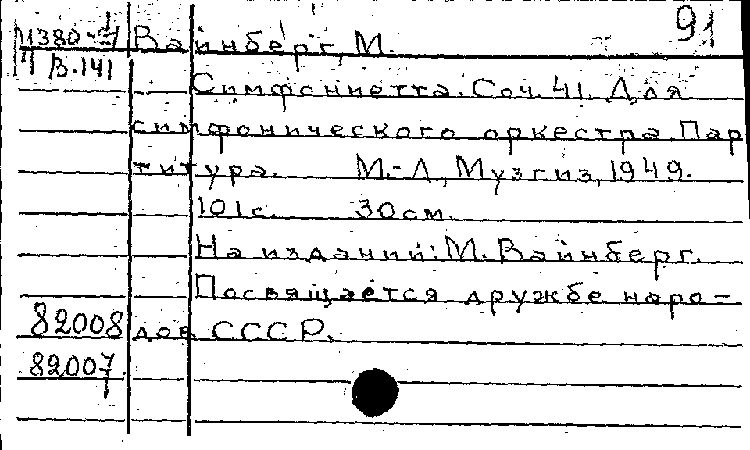 91
М380-I Вайнберг, М.
П В.141
Симфониетта. Соч. 41. Для
симфонического оркестра. Пар
титура. М.-Л, Музгиз, 1949.
101с. 30см.
На издании: М. Вайнберг.
Посвящается дружбе наро-
82008 дов СССР.
82007